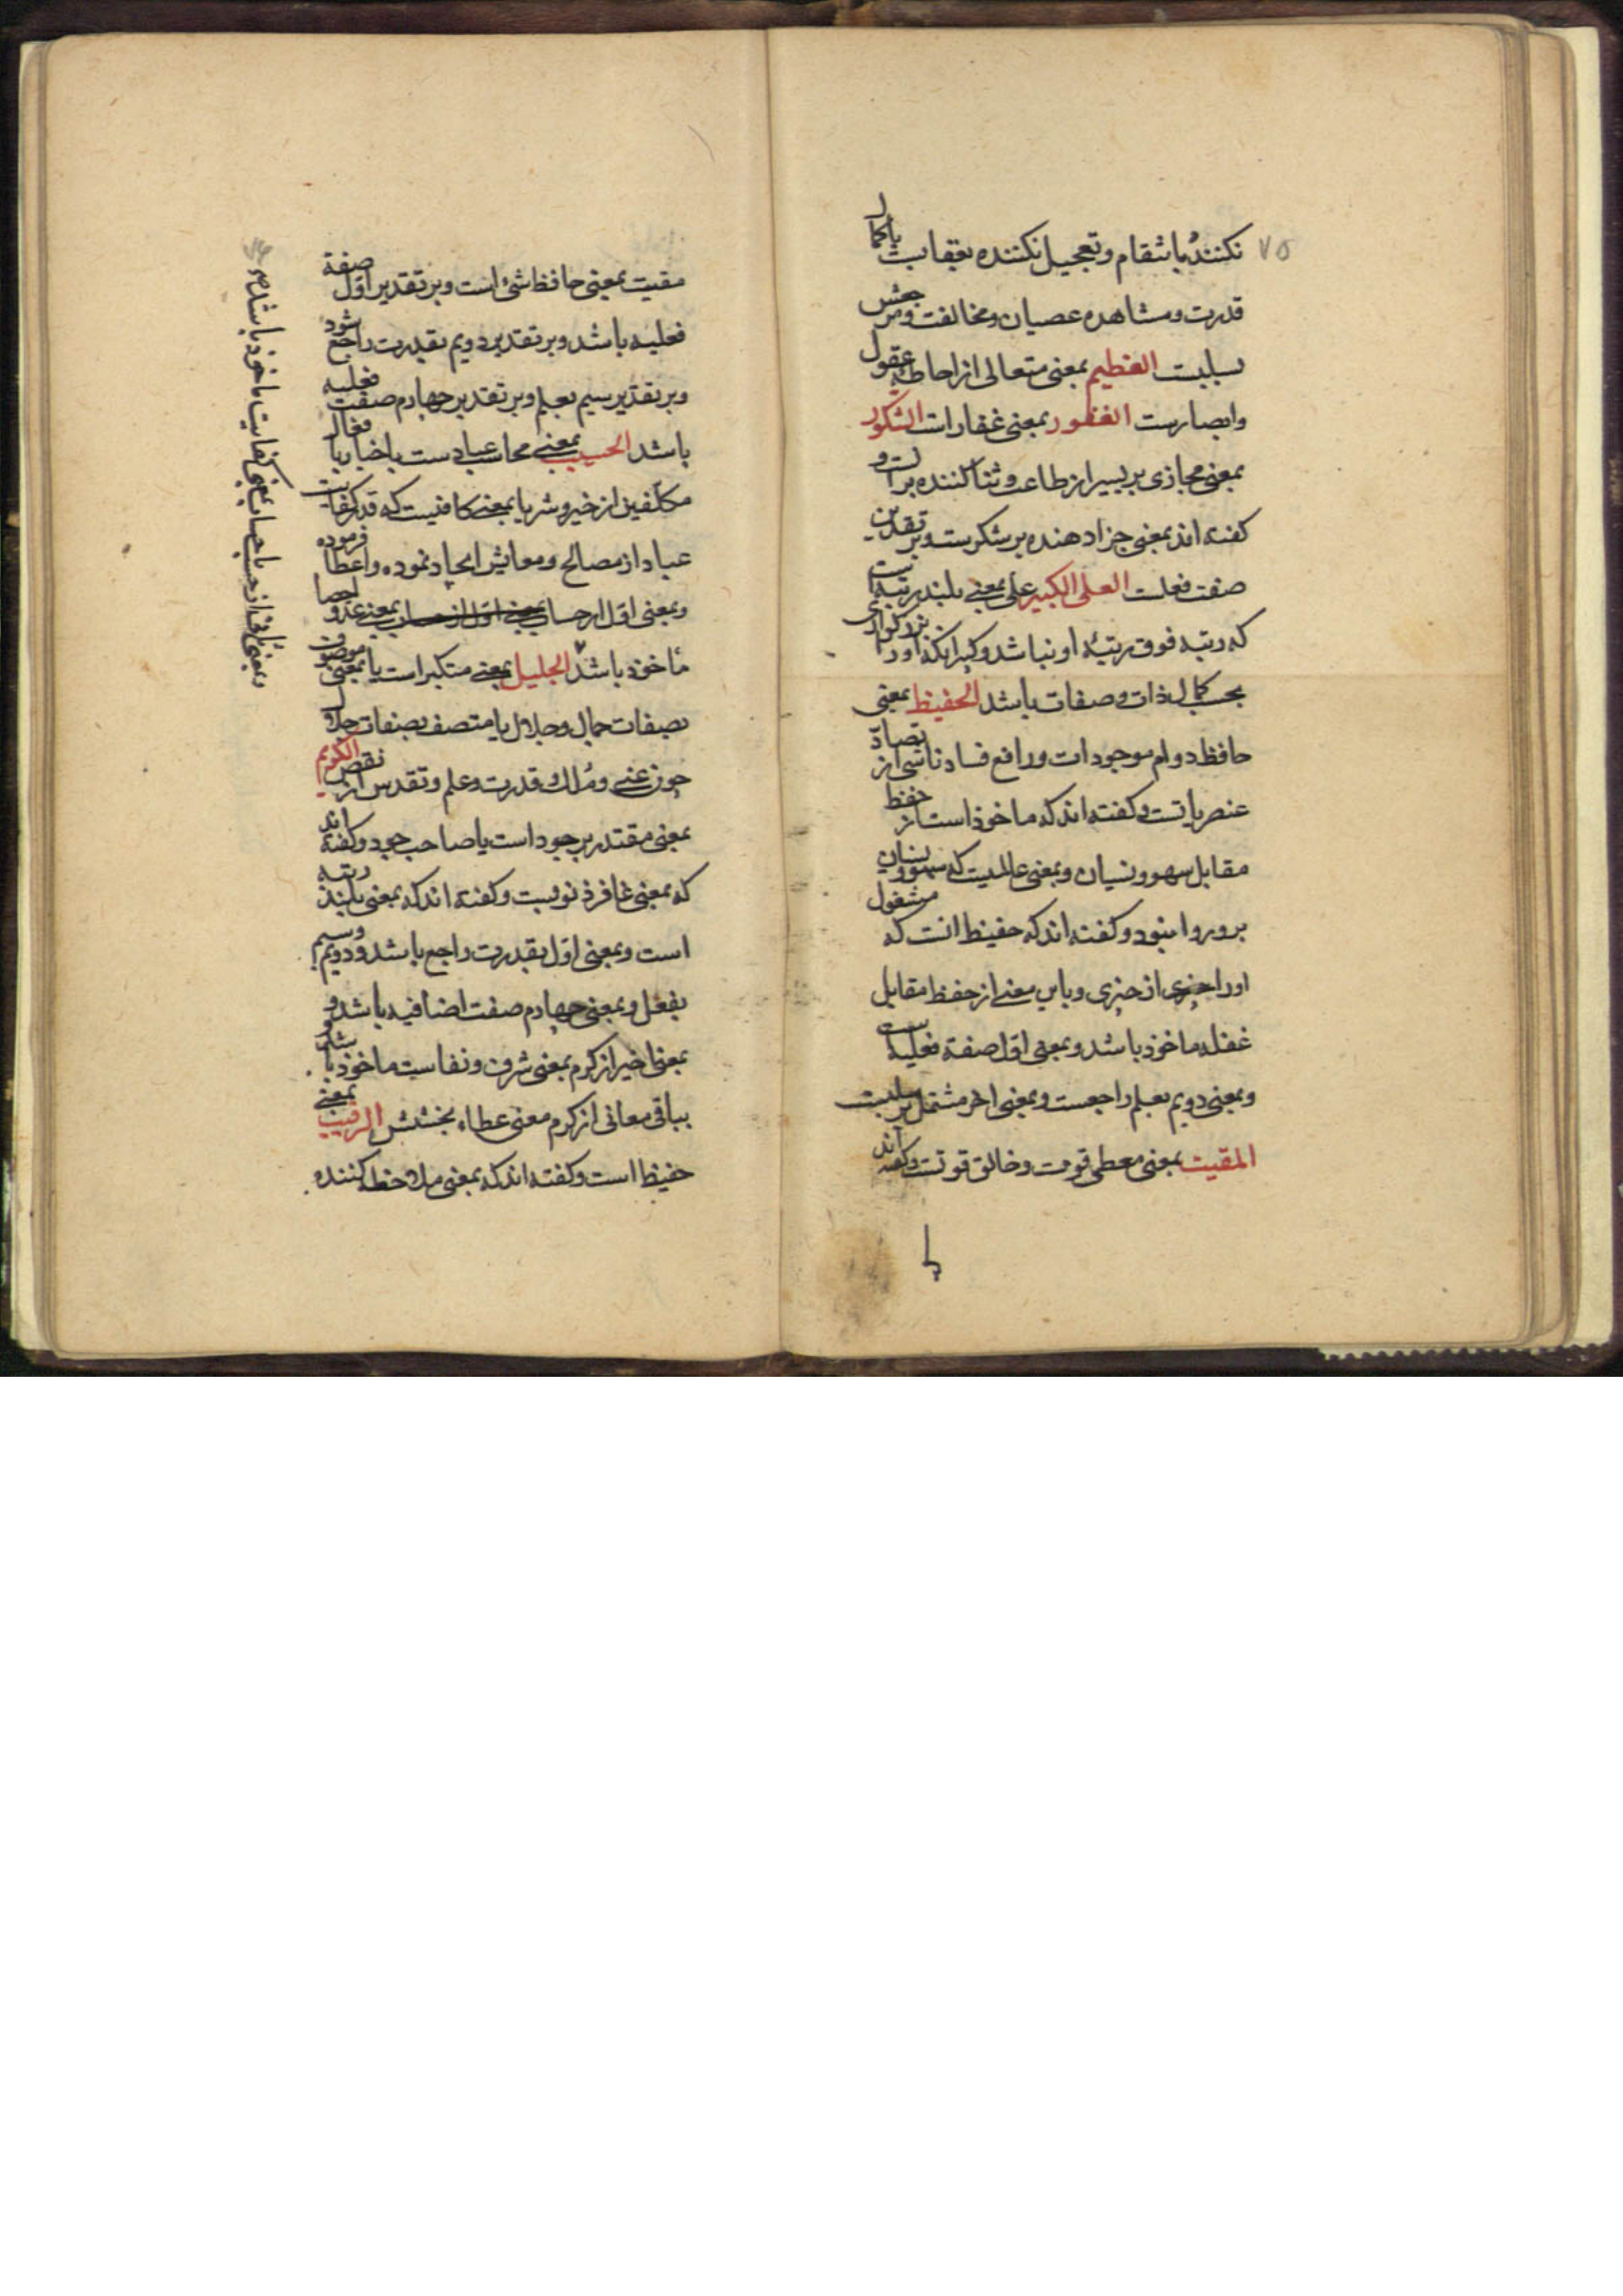 ۷۵
نکننده بانتقام و تعجیل نکننده بعقابست باکمال
قدرت و مشاهده عصیان و مخالفت و مرجعش
بسلبیت العظیم بمعنی متعالی از احاطهٔ عقول
و ابصارست الغفور بمعنی غفارات الشکور
بمعنی مجازی بر یسیر از طاعت و ثنا کننده براست و
کفته اند بمعنی جزا دهنده بر شکرست و بر تقدیرین
صفت فعلست العلی الکبیر علی بمعنی بلند رتبه است
که رتبه فوق رتبهٔ او نباشد و کبیر آنکه او را بزرکواری
بحسب کمال ذات و صفات باشد الحفیظ بمعنی
حافظ دوام موجودات و رافع فساد ناشی از تضادّ
عنصریاتست و کفته اند که ماخوذ است از حفظ
مقابل سهو و نسیان و بمعنی عالمیت که سهو و نسیان
برو روا نبود و کفته اند که حفیظ انست که مشغول
او را چیزی از چیزی و باین معنی از حفظ مقابل
غفله ماخوذ باشد و بمعنی اول صفة فعلیه است
و بمعنی دویم بعلم راجعست و بمعنی اخر مشتمل بر سلبیت
المقیت بمعنی معطی قوت و خالق قوتست و کفته اند
مقیت بمعنی حافظ شیٔ است و بر تقدیر اوّل صفة
فعلیه باشد و بر تقدیر دویم بقدرت راجع شود
و بر تقدیر سیم بعلم و بر تقدیر چهارم صفت فعلیه
باشد الحسیب بمعنی محاسب عبادست باخبار بافعال
مکلّفین از خیر و شر یا بمعنی کافیست که قدر کفایت
عباد از مصالح و معایش ایجاد نموده و اعطا فرموده
و بمعنی اول از حساب بمعنی اول از حساب بمعنی عد و احصا
مأخوذ باشد الجلیل بمعنی متکبر است یا بمعنی موصوف
بصفات جمال و جلال یا متصف بصفات جلال
چون غنی و مُلك و قدرت و علم و تقدس از نقص الکریم
بمعنی مقتدر بر جود است یا صاحب جود و کفته اند
که بمعنی غافر ذنوبست و کفته اند که بمعنی بلند رتبه
است و بمعنی اول بقدرت راجع باشد و دویم و سیم
بفعل و بمعنی چهارم صفت اضافیه باشد و
بمعنا اخیر از کرم بمعنی شرف و نفاست ماخوذ باشد و
بباقی معانی از کرم معنی عطاء بخشش الرقیب بمعنی
حفیظ است و کفته اند که بمعنی ملاحظه کننده
و بمعنی ثانی از حسب یا حساب بمعنی کفایت ماخوذ باشد صح